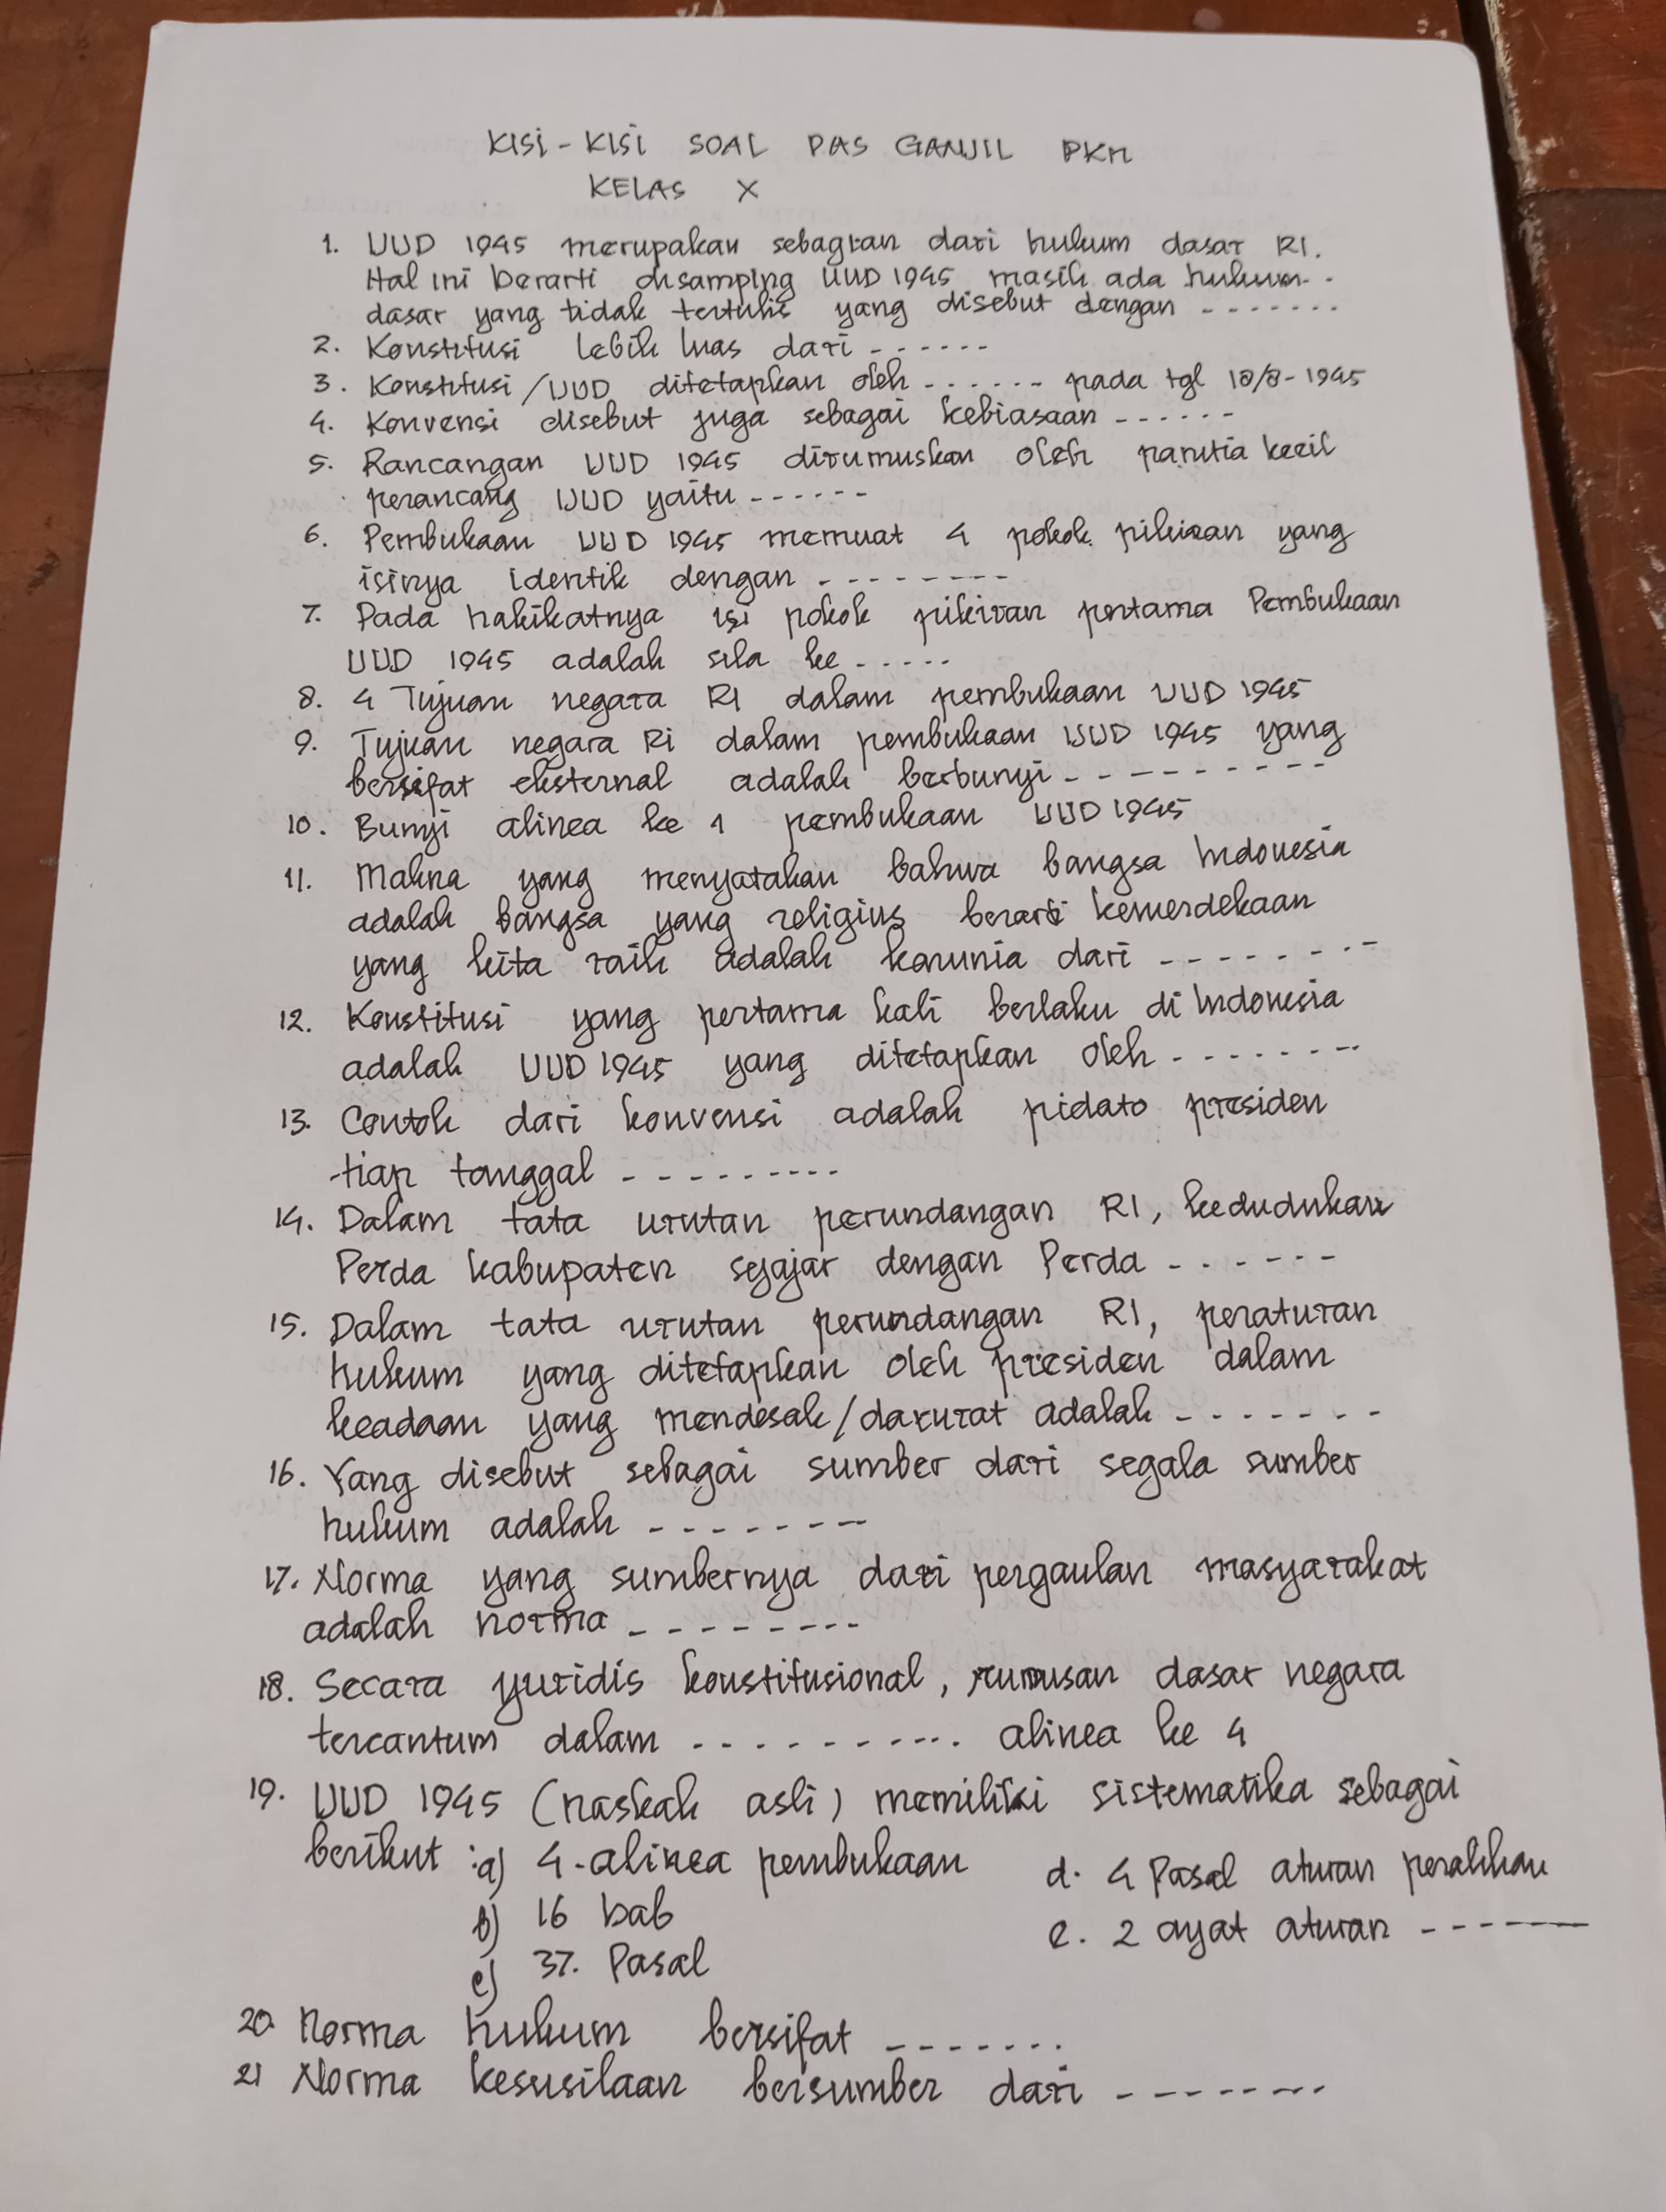 KISI-KISI SOAL PAS GANJIL PKN
KELAS X
1. UUD 1945 merupakan sebagian dari hukum dasar RI.
Hal ini berarti disamping UUD 1945 masih ada hukum--
dasar yang tidak tertulis yang disebut dengan -------
2. Konstitusi lebih luas dari ------
3. Konstitusi/UUD ditetapkan oleh ------ pada tgl 18/8-1945
4. Konvensi disebut juga sebagai kebiasaan ------
5. Rancangan UUD 1945 dirumuskan oleh panitia kecil
perancang UUD yaitu ------
6. Pembukaan UUD 1945 memuat 4 pokok pikiran yang
isinya identik dengan --------
7. Pada hakikatnya isi pokok pikiran pertama Pembukaan
UUD 1945 adalah sila ke -----
8. 4 Tujuan negara RI dalam pembukaan UUD 1945
9. Tujuan negara Ri dalam pembukaan UUD 1945 yang
bersifat eksternal adalah berbunyi ---------
10. Bunyi alinea ke 1 pembukaan UUD 1945
11. Makna yang menyatakan bahwa bangsa Indonesia
adalah bangsa yang religius berarti kemerdekaan
yang kita raih adalah karunia dari --------
12. Konstitusi yang pertama kali berlaku di Indonesia
adalah UUD 1945 yang ditetapkan oleh --------
13. Contoh dari konvensi adalah pidato presiden
tiap tanggal ---------
14. Dalam tata urutan perundangan RI, kedudukan
Perda kabupaten sejajar dengan Perda ------
15. Dalam tata urutan perundangan RI, peraturan
hukum yang ditetapkan oleh presiden dalam
keadaan yang mendesak/darurat adalah -------
16. Yang disebut sebagai sumber dari segala sumber
hukum adalah --------
17. Norma yang sumbernya dari pergaulan masyarakat
adalah norma --------
18. Secara yuridis konstitusional, rumusan dasar negara
tercantum dalam ---------- alinea ke 4
19. UUD 1945 (naskah asli) memiliki sistematika sebagai
berikut : a) 4 - alinea pembukaan
b) 16 bab
c) 37. Pasal
d. 4 Pasal aturan peralihan
e. 2 ayat aturan -------
20. Norma hukum bersifat -------
21 Norma kesusilaan bersumber dari --------